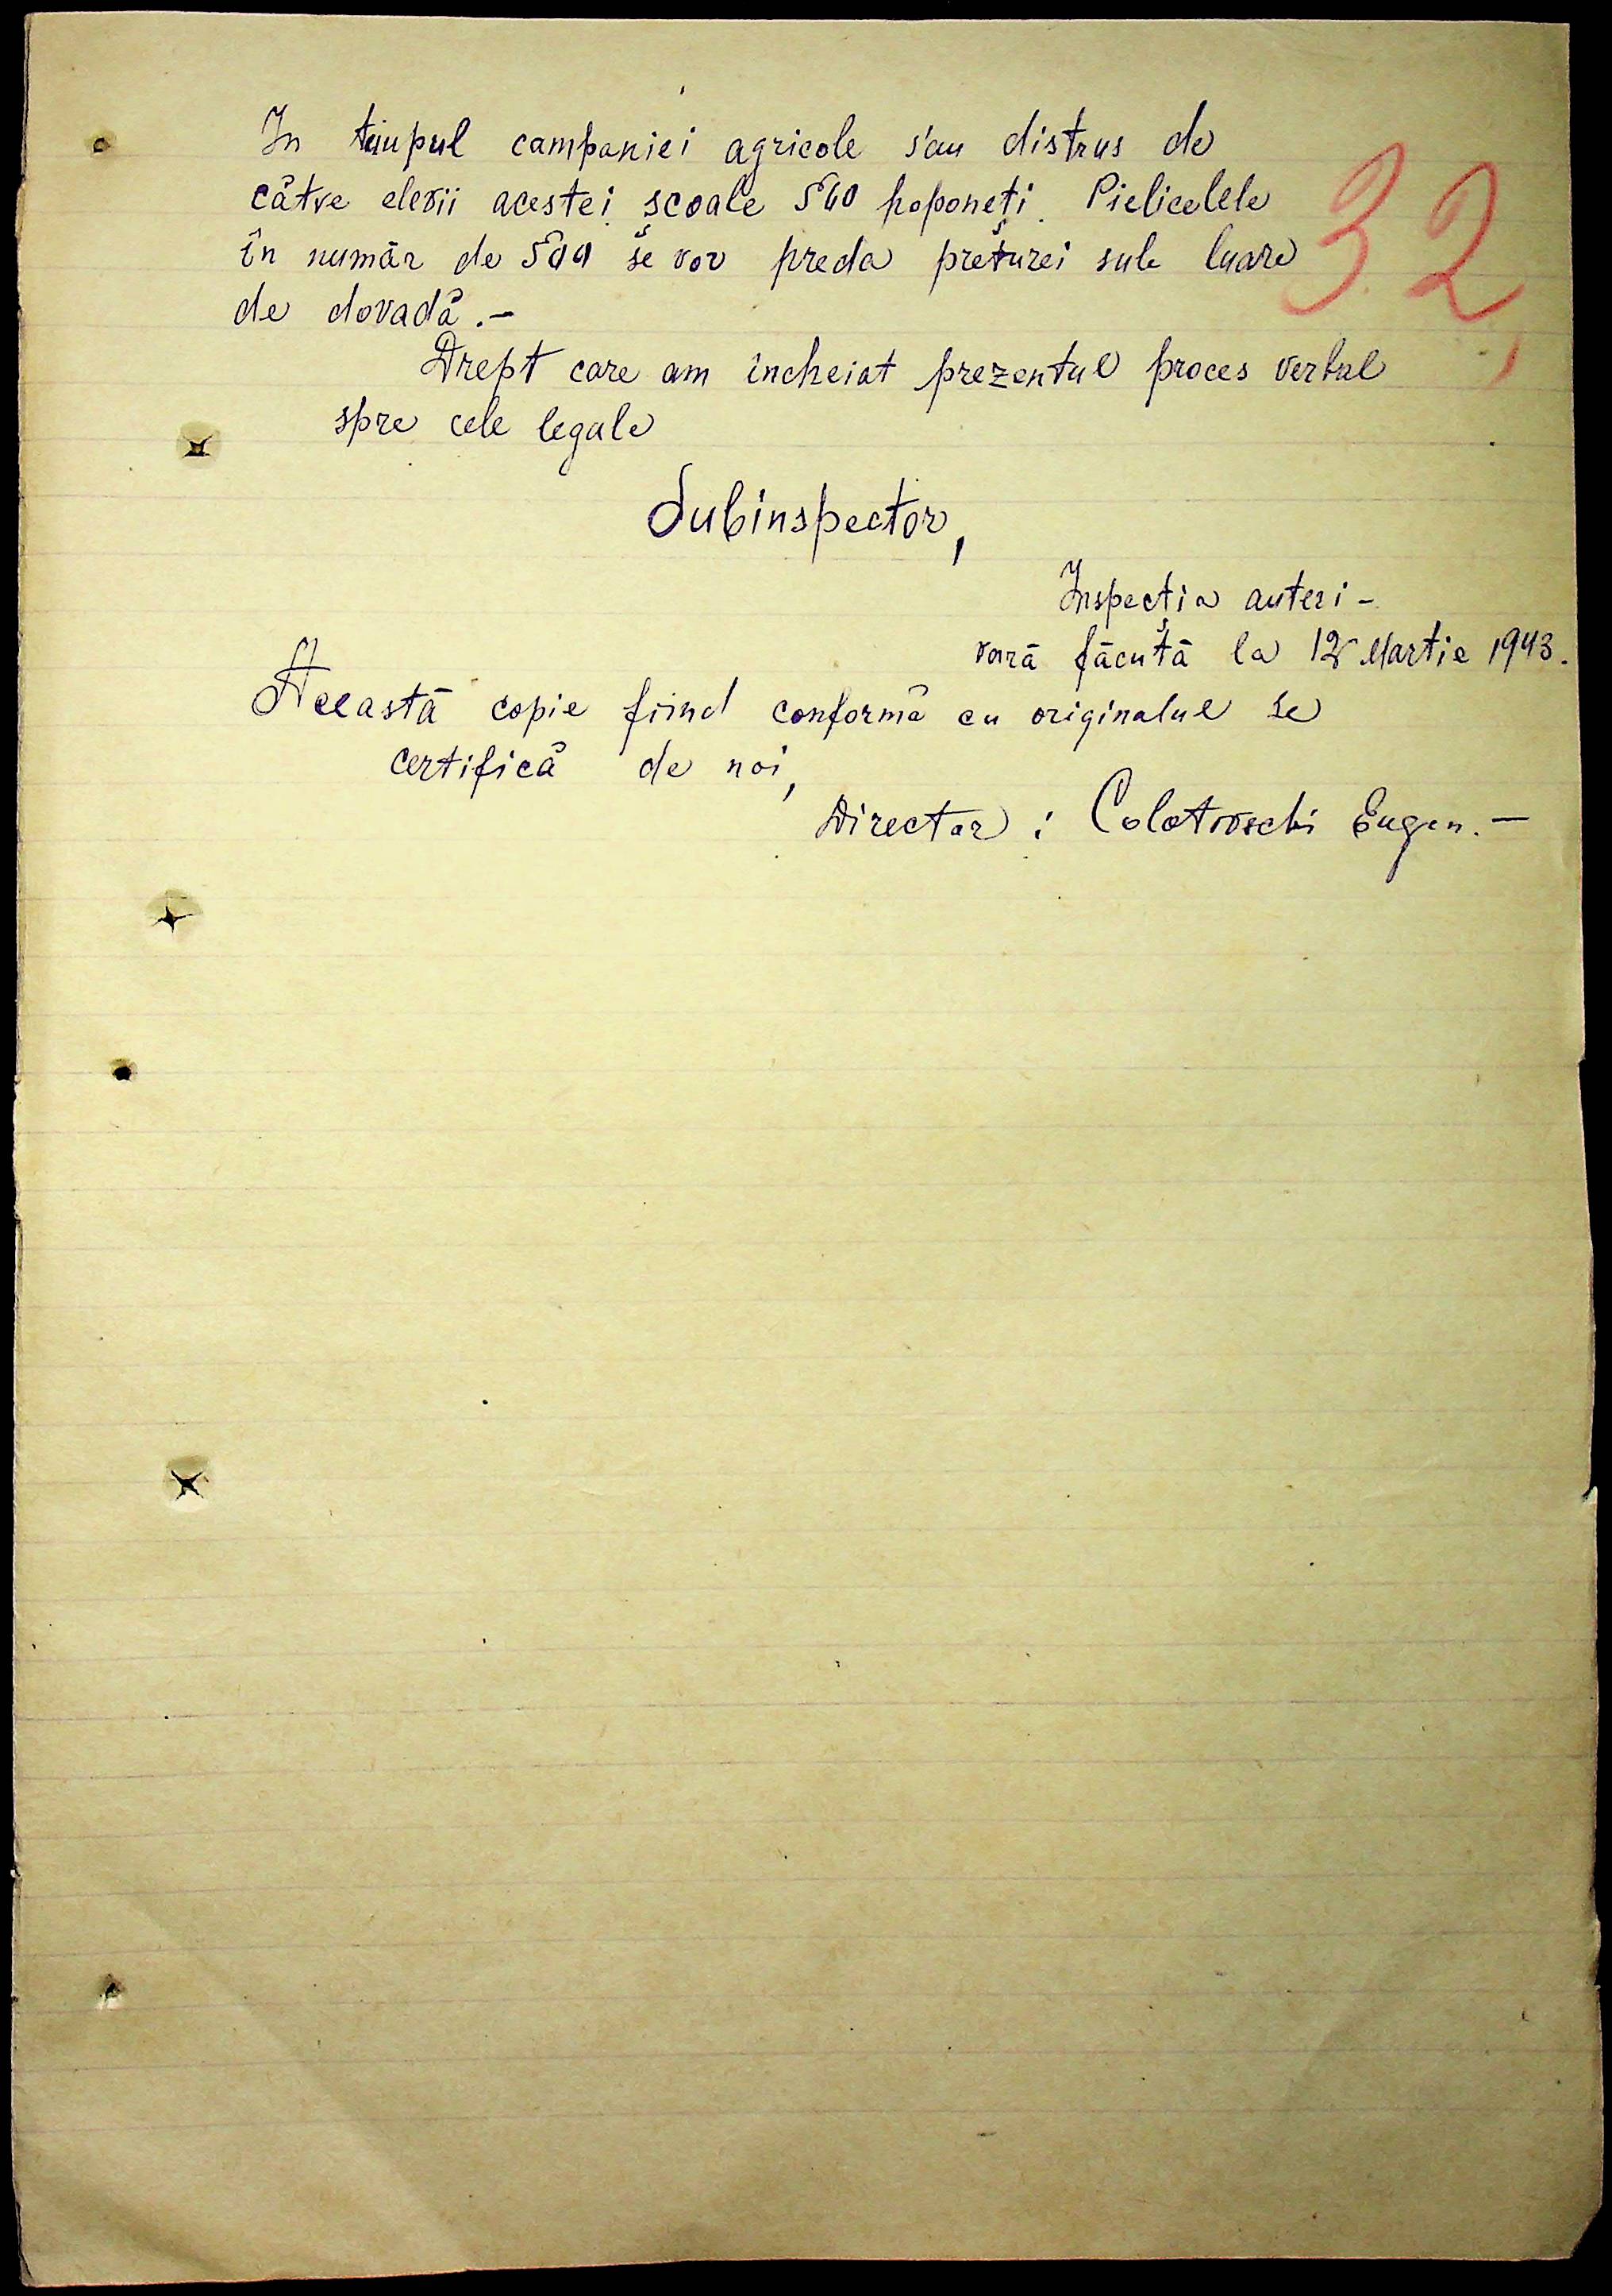 In timpul campaniei agricole s'au distrus de
32
către elevii acestei școale 500 poponeți. Pielicelele
în număr de 500 se vor preda preturei sub luare
de dovadă.-
Drept care am încheiat prezentul proces verbal
spre cele legale
Subinspector,
Inspecția anteri-
oară făcută la 12 Martie 1943.
Această copie fiind conformă cu originalul se
certifică de noi,
Director: Eugen.-